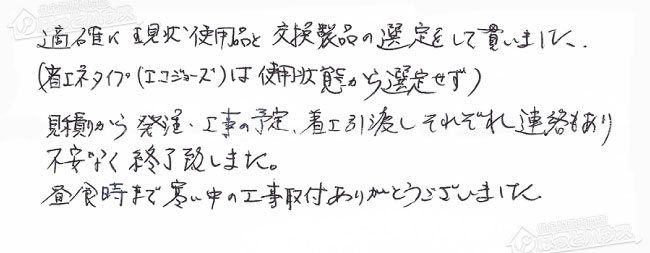 適確に現状使用品と交換製品の選定をして貰いました。
(省エネタイプ(エコジョーズ)は使用状態から選定せず)
見積りから発注・工事の予定、着工引渡しそれぞれ連絡もあり
不安なく終了致しました。
昼食時まで寒い中の工事取付ありがとうございました。